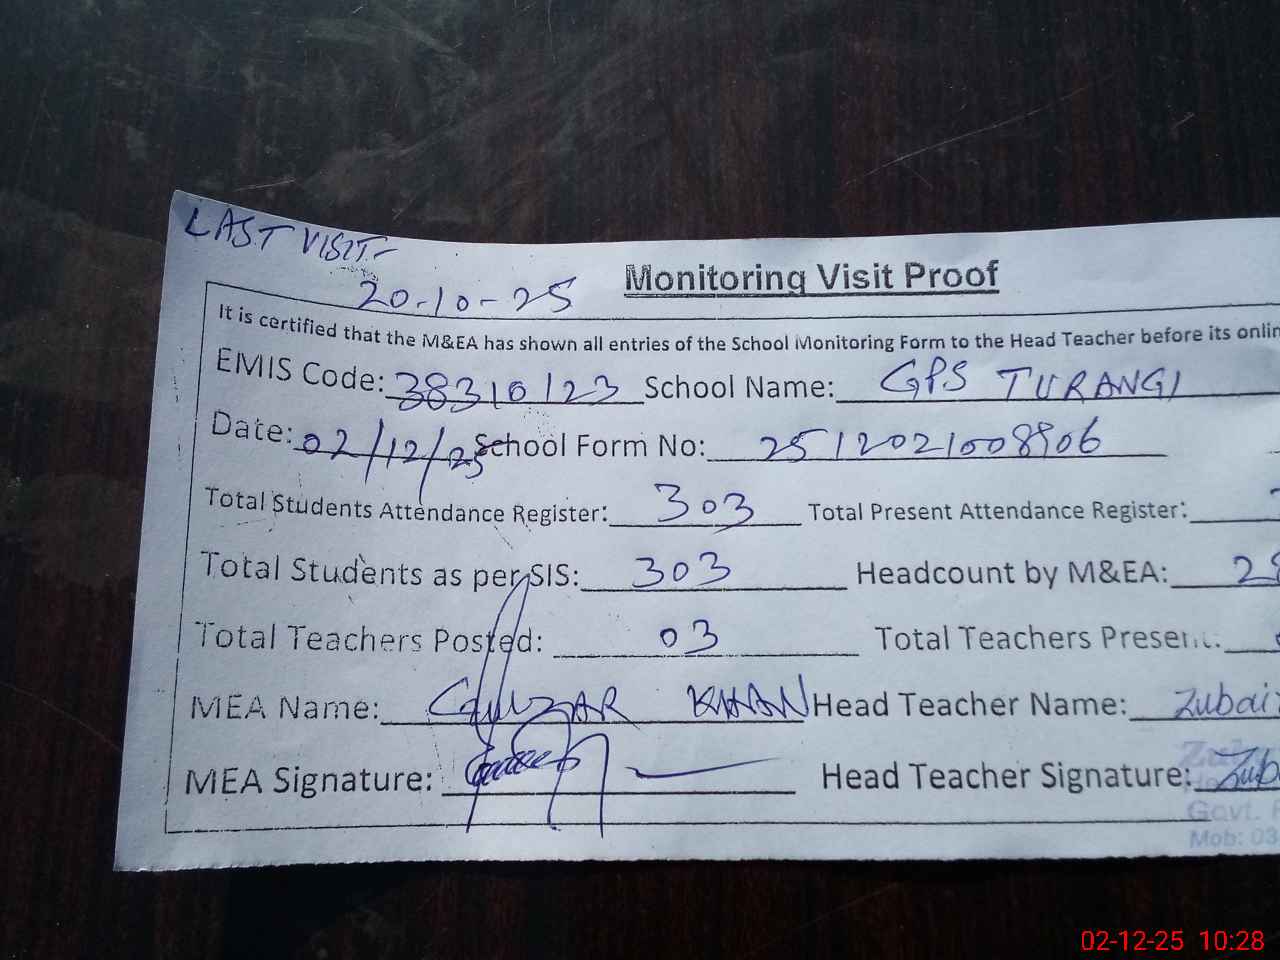 LAST VISIT:-
20-10-25
Monitoring Visit Proof
It is certified that the M&EA has shown all entries of the School Monitoring Form to the Head Teacher before its onlin
EMIS Code: 38310123 School Name: GPS TURANGI
Date: 02/12/25 School Form No: 2512021008906
Total Students Attendance Register: 303 Total Present Attendance Register:
Total Students as per SIS: 303 Headcount by M&EA: 28
Total Teachers Posted: 03 Total Teachers Present:
MEA Name: GULZAR KHAN Head Teacher Name: Zubair
MEA Signature: Head Teacher Signature: Zub
Govt.
Mob: 03
02-12-25 10:28